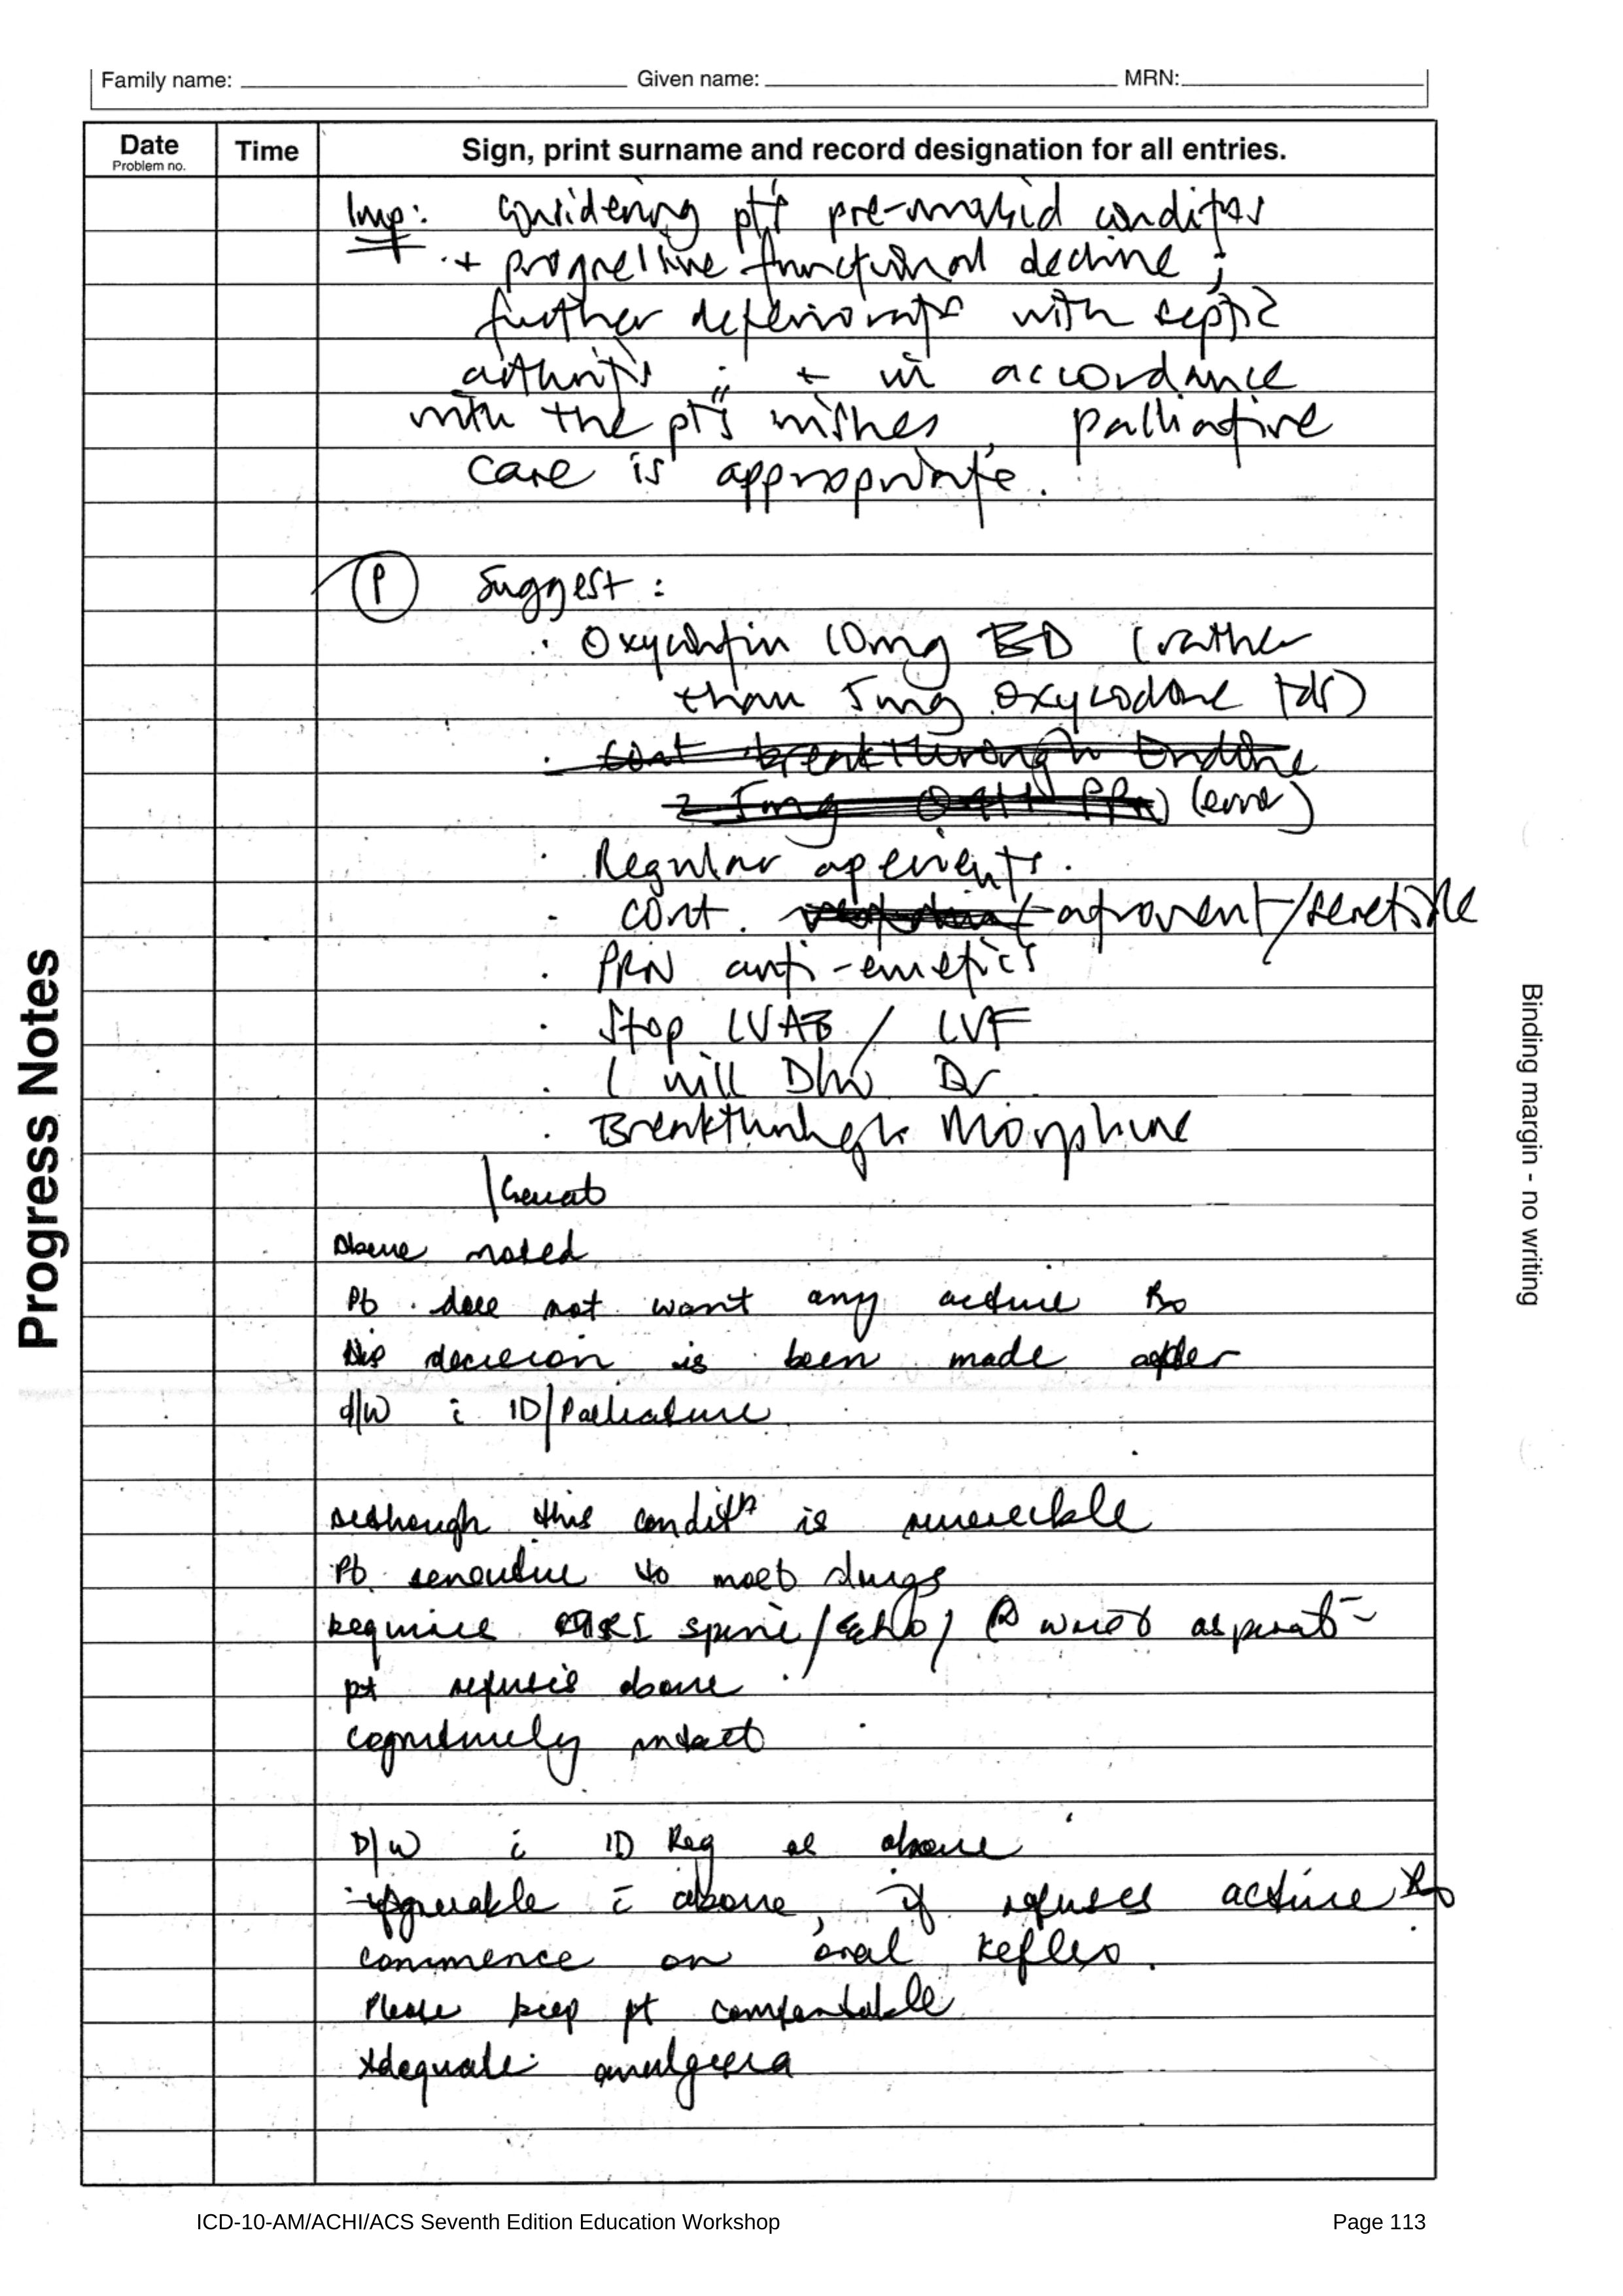 Family name: Given name: MRN:
Date Time Sign, print surname and record designation for all entries.
Problem no.
Imp: Considering pt's pre-morbid conditns
+ progressive functional decline ;
further deterioratn with septic
arthritis ; + in accordance
with the pt's wishes, palliative
care is appropriate.
P Suggest :
· Oxycontin 10mg BD (rather
than 5mg oxycodone tds)
· cont breakthrough Endone
2.5mg Q4H PRN) (error)
· Regular aperients.
- cont. atrovent/seretide
· PRN anti-emetics
· Stop IVAB / IVF
· I will D/W Dr
· Breakthrough Morphine
Above noted
Pt does not want any active Rx
His decision is been made after
d/w c̄ ID/Palliative
Although this condit^n is
Pt sensitive to most drugs
Require MRI spine/Echo/ R wrist aspirat–
pt refuses above
Cognitively intact
D/W c̄ ID Reg as above
c̄ above, if refuses active Rx
commence on oral Keflex.
Please keep pt comfortable
Adequate analgesia
Progress Notes
Binding margin - no writing
ICD-10-AM/ACHI/ACS Seventh Edition Education Workshop Page 113